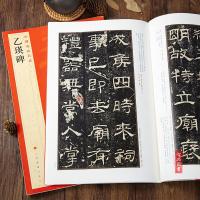 明故特立廟褒
成侯四時來祠
事已即去廟有
禮器無常人掌
乙瑛碑